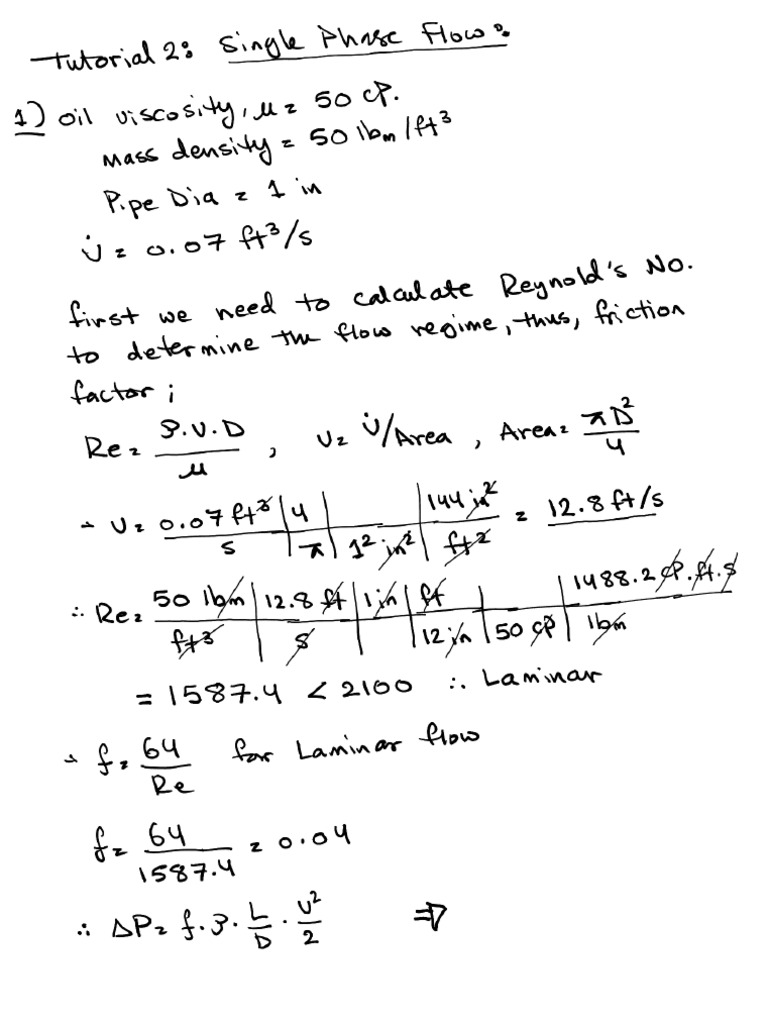 Tutorial 2: Single Phase Flow:
1) oil viscosity, μ = 50 cP.
mass density = 50 lbm/ft³
Pipe Dia = 1 in
V̇ = 0.07 ft³/s
first we need to calculate Reynold's No.
to determine the flow regime, thus, friction
factor;
Re = ρ.v.D / μ , v = V̇/Area , Area = πD² / 4
∴ v = 0.07 ft³ / s | 4 / π | 1² in² | 144 in² / ft² = 12.8 ft/s
∴ Re = 50 lbm / ft³ | 12.8 ft / s | 1 in | ft / 12 in | 50 cP | 1488.2 cP.ft.s / lbm
= 1587.4 < 2100 ∴ Laminar
∴ f = 64 / Re for Laminar flow
f = 64 / 1587.4 = 0.04
∴ ΔP = f.ρ. L/D . v²/2 ⇒